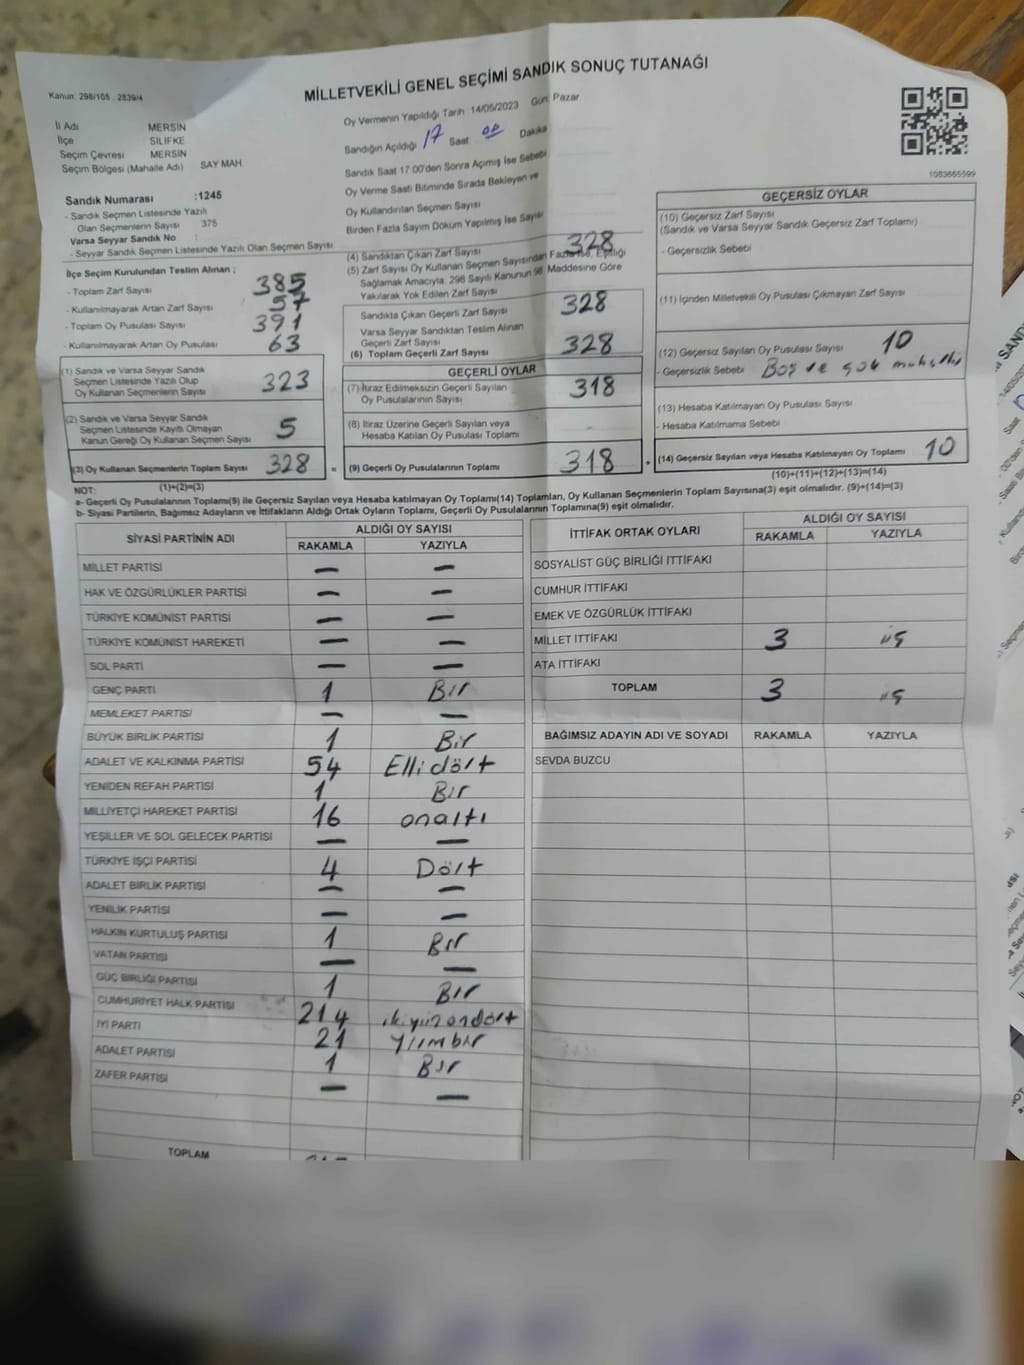 MİLLETVEKİLİ GENEL SEÇİMİ SANDIK SONUÇ TUTANAĞI
Kanun: 298/105 . 2839/4
İl Adı MERSİN
İlçe SİLİFKE
Seçim Çevresi MERSİN
Seçim Bölgesi (Mahalle Adı) SAY MAH
Sandık Numarası :1245
- Sandık Seçmen Listesinde Yazılı
Olan Seçmenlerin Sayısı 375
Varsa Seyyar Sandık No :
- Seyyar Sandık Seçmen Listesinde Yazılı Olan Seçmen Sayısı
İlçe Seçim Kurulundan Teslim Alınan ;
- Toplam Zarf Sayısı 385
- Kullanılmayarak Artan Zarf Sayısı 57
- Toplam Oy Pusulası Sayısı 391
- Kullanılmayarak Artan Oy Pusulası 63
(1) Sandık ve Varsa Seyyar Sandık
Seçmen Listesinde Yazılı Olup
Oy Kullanan Seçmenlerin Sayısı 323
(2) Sandık ve Varsa Seyyar Sandık
Seçmen Listesinde Kayıtlı Olmayan
Kanun Gereği Oy Kullanan Seçmen Sayısı 5
(3) Oy Kullanan Seçmenlerin Toplam Sayısı 328 =
(1)+(2)=(3)
Oy Vermenin Yapıldığı Tarih 14/05/2023 Gün Pazar
Sandığın Açıldığı 17 Saat 00 Dakika
Sandık Saat 17.00'den Sonra Açılmış İse Sebebi
Oy Verme Saati Bitiminde Sırada Bekleyen ve
Oy Kullandırılan Seçmen Sayısı
Birden Fazla Sayım Döküm Yapılmış İse Sayısı
(4) Sandıktan Çıkan Zarf Sayısı 328
(5) Zarf Sayısı Oy Kullanan Seçmen Sayısından Fazla ise, Eşitliği
Sağlamak Amacıyla, 298 Sayılı Kanunun 98. Maddesine Göre
Yakılarak Yok Edilen Zarf Sayısı
Sandıkta Çıkan Geçerli Zarf Sayısı 328
Varsa Seyyar Sandıktan Teslim Alınan
Geçerli Zarf Sayısı
(6) Toplam Geçerli Zarf Sayısı 328
GEÇERLİ OYLAR
(7) İtiraz Edilmeksizin Geçerli Sayılan
Oy Pusulalarının Sayısı 318
(8) İtiraz Üzerine Geçerli Sayılan veya
Hesaba Katılan Oy Pusulası Toplamı -
(9) Geçerli Oy Pusulalarının Toplamı 318 +
1083665599
GEÇERSİZ OYLAR
(10) Geçersiz Zarf Sayısı
(Sandık ve Varsa Seyyar Sandık Geçersiz Zarf Toplamı)
- Geçersizlik Sebebi
(11) İçinden Milletvekili Oy Pusulası Çıkmayan Zarf Sayısı
(12) Geçersiz Sayılan Oy Pusulası Sayısı 10
- Geçersizlik Sebebi Boş ve çok
(13) Hesaba Katılmayan Oy Pusulası Sayısı
- Hesaba Katılmama Sebebi
(14) Geçersiz Sayılan veya Hesaba Katılmayan Oy Toplamı 10
(10)+(11)+(12)+(13)=(14)
NOT:
a- Geçerli Oy Pusulalarının Toplamı(9) ile Geçersiz Sayılan veya Hesaba katılmayan Oy Toplamı(14) Toplamları, Oy Kullanan Seçmenlerin Toplam Sayısına(3) eşit olmalıdır. (9)+(14)=(3)
b- Siyasi Partilerin, Bağımsız Adayların ve İttifakların Aldığı Ortak Oyların Toplamı, Geçerli Oy Pusulalarının Toplamına(9) eşit olmalıdır.
SİYASİ PARTİNİN ADI ALDIĞI OY SAYISI
RAKAMLA YAZIYLA
MİLLET PARTİSİ — —
HAK VE ÖZGÜRLÜKLER PARTİSİ — —
TÜRKİYE KOMÜNİST PARTİSİ — —
TÜRKİYE KOMÜNİST HAREKETİ — —
SOL PARTİ — —
GENÇ PARTİ 1 Bir
MEMLEKET PARTİSİ — —
BÜYÜK BİRLİK PARTİSİ 1 Bir
ADALET VE KALKINMA PARTİSİ 54 Elli dört
YENİDEN REFAH PARTİSİ 1 Bir
MİLLİYETÇİ HAREKET PARTİSİ 16 onaltı
YEŞİLLER VE SOL GELECEK PARTİSİ — —
TÜRKİYE İŞÇİ PARTİSİ 4 Dört
ADALET BİRLİK PARTİSİ — —
YENİLİK PARTİSİ — —
HALKIN KURTULUŞ PARTİSİ 1 Bir
VATAN PARTİSİ — —
GÜÇ BİRLİĞİ PARTİSİ 1 Bir
CUMHURİYET HALK PARTİSİ 214 ikiyüzondört
İYİ PARTİ 21 Yirmibir
ADALET PARTİSİ 1 Bir
ZAFER PARTİSİ — —
TOPLAM
İTTİFAK ORTAK OYLARI ALDIĞI OY SAYISI
RAKAMLA YAZIYLA
SOSYALİST GÜÇ BİRLİĞİ İTTİFAKI
CUMHUR İTTİFAKI
EMEK VE ÖZGÜRLÜK İTTİFAKI
MİLLET İTTİFAKI 3 üç
ATA İTTİFAKI
TOPLAM 3 üç
BAĞIMSIZ ADAYIN ADI VE SOYADI RAKAMLA YAZIYLA
SEVDA BUZCU